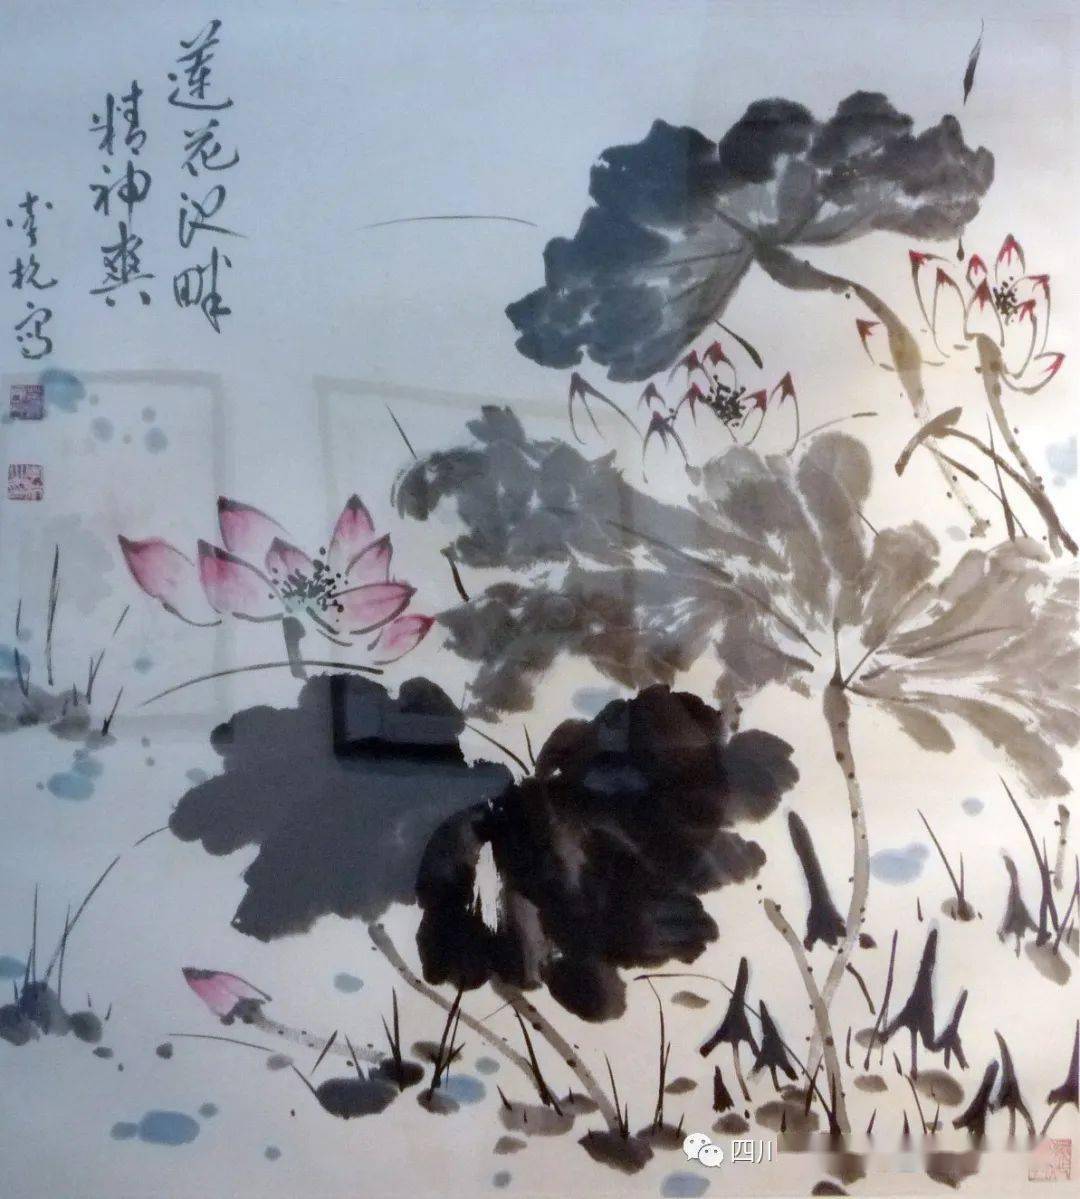 莲花池畔
精神爽
李杭写
四川